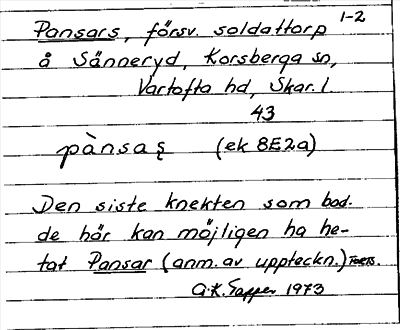 1-2
Pansars, försv. soldattorp
å Sänneryd, Korsberga sn,
Vartofta hd, Skar. l
43
pànsaʂ (ek 8E2a)
Den siste knekten som bod-
de här kan möjligen ha he-
tat Pansar (anm. av uppteckn.) Forts.
G.K. Tapper 1973